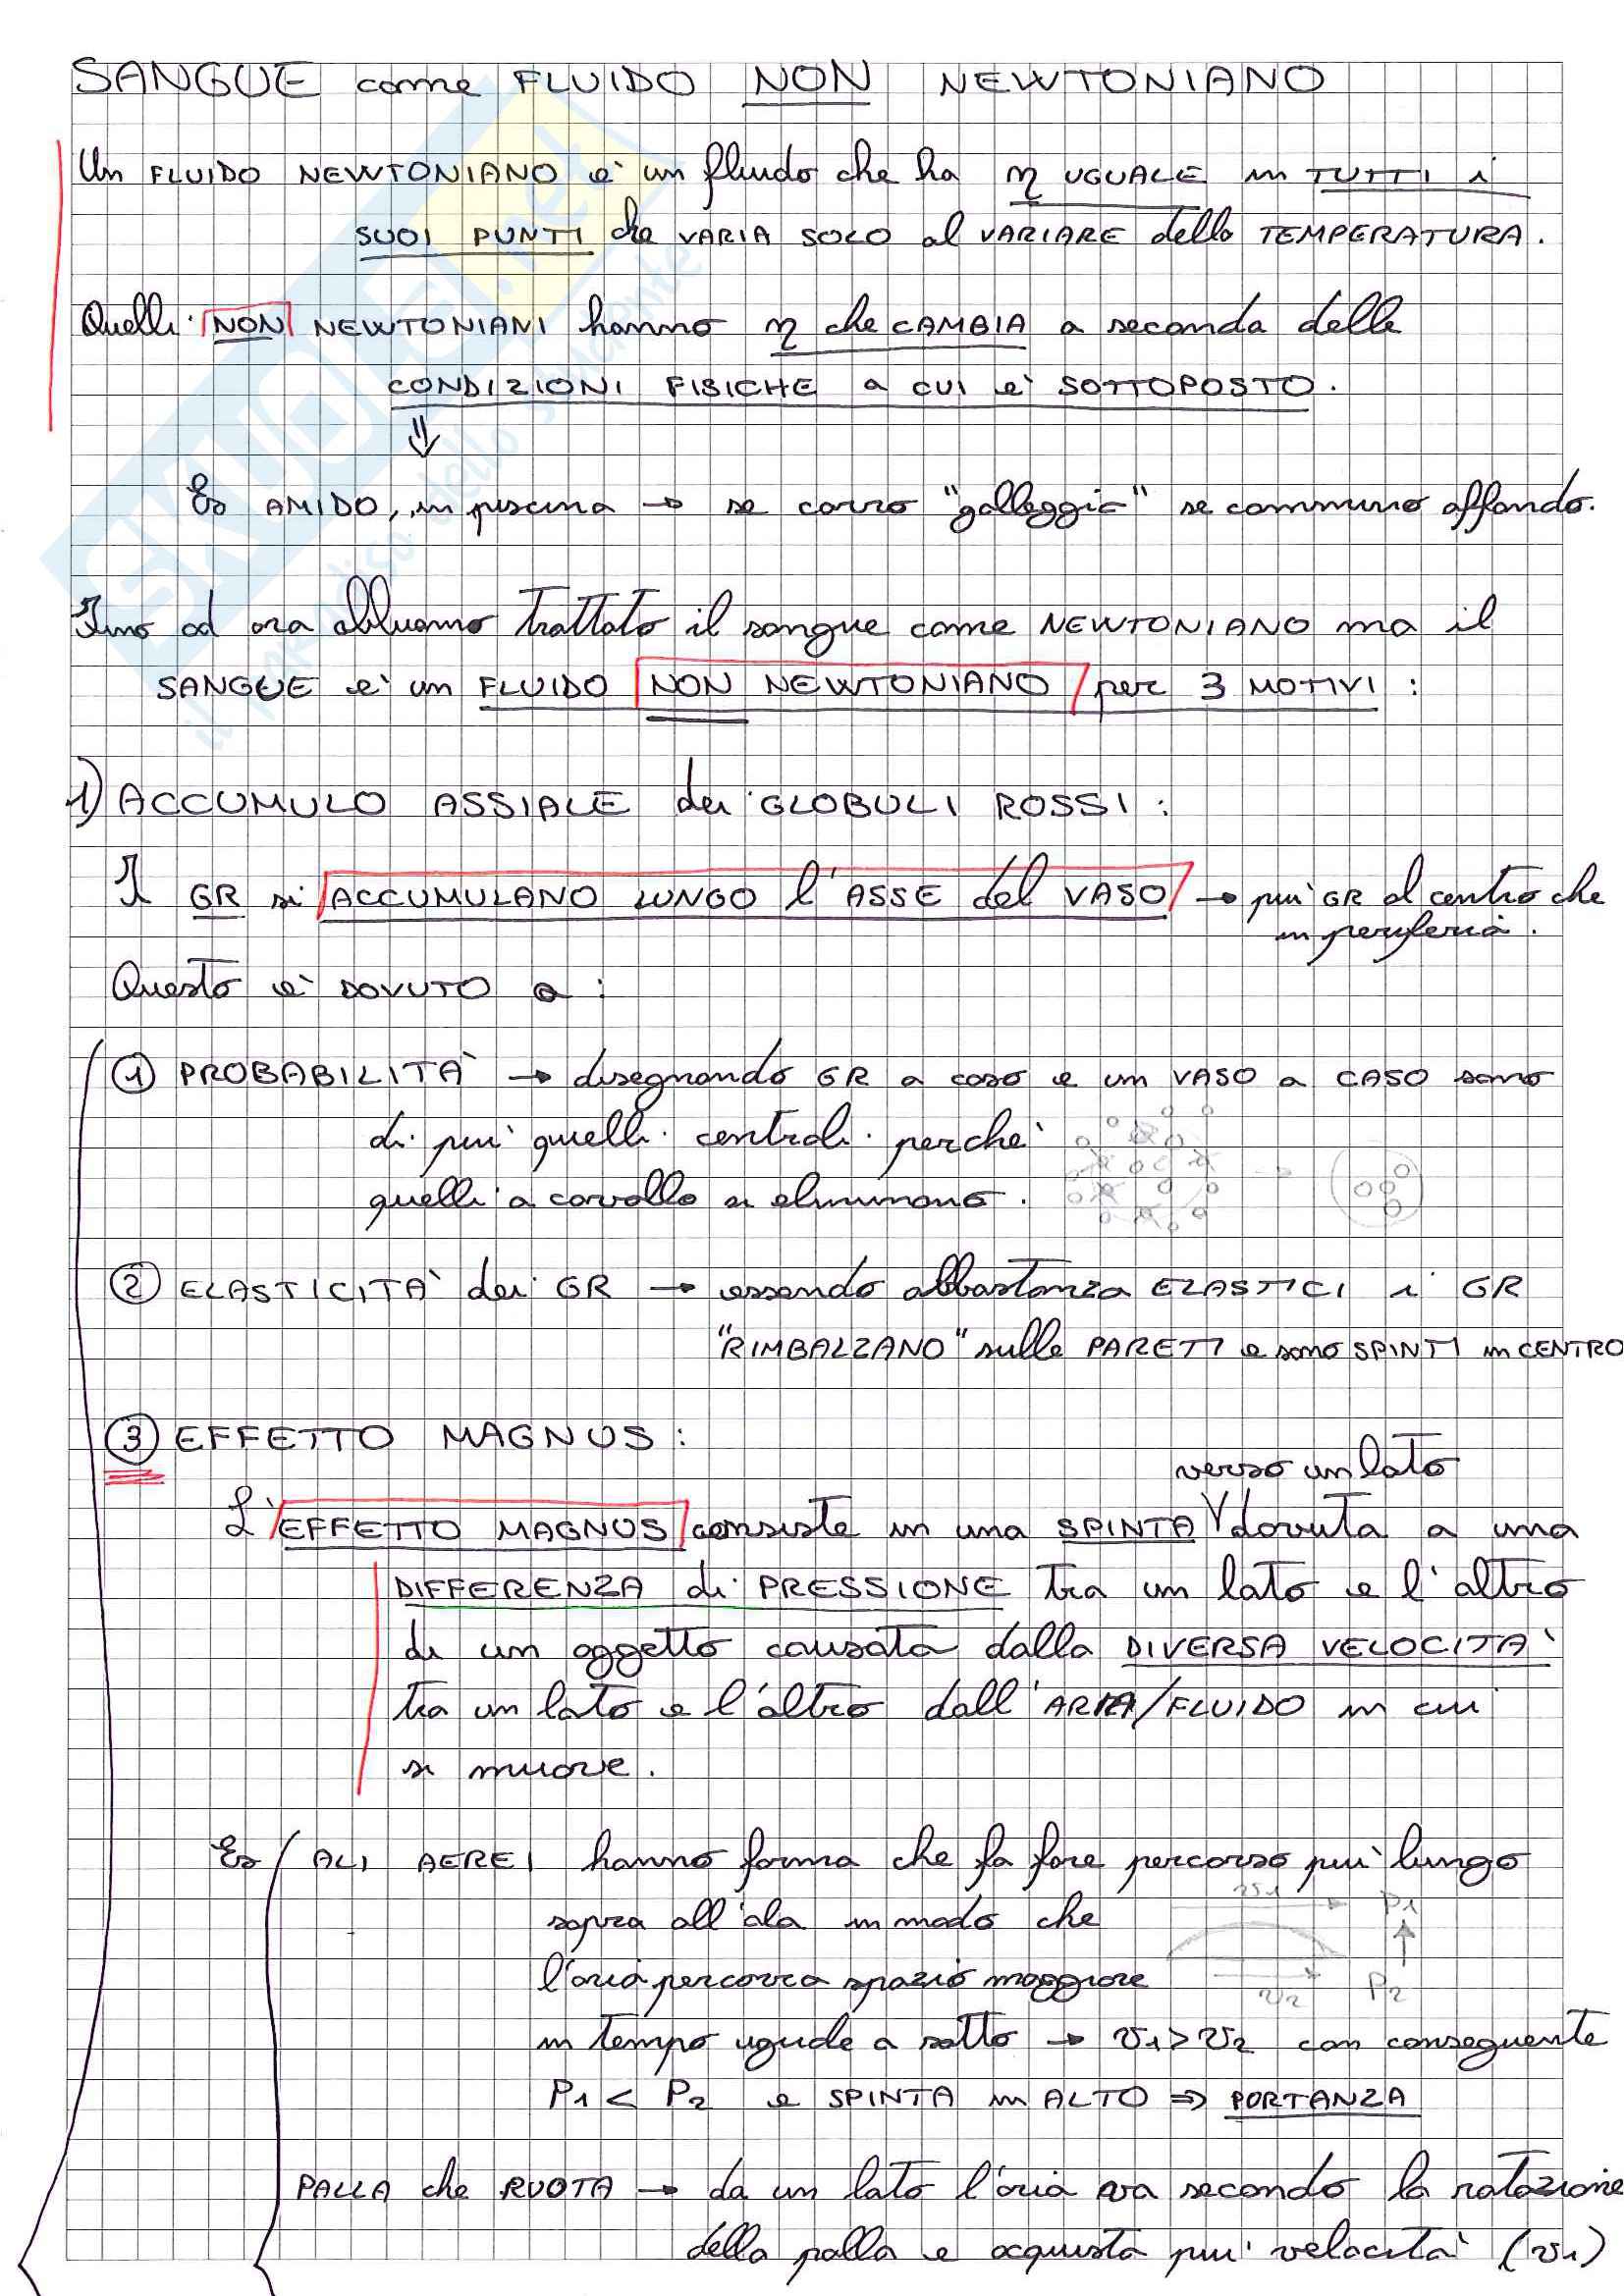 SANGUE come FLUIDO NON NEWTONIANO
Un FLUIDO NEWTONIANO è un fluido che ha η UGUALE in TUTTI i
SUOI PUNTI che VARIA SOLO al VARIARE della TEMPERATURA.
Quelli NON NEWTONIANI hanno η che CAMBIA a seconda delle
CONDIZIONI FISICHE a CUI è SOTTOPOSTO.
⇓
Es AMIDO, in piscina → se corro "galleggio" se cammino affondo.
Fino ad ora abbiamo trattato il sangue come NEWTONIANO ma il
SANGUE è un FLUIDO NON NEWTONIANO per 3 MOTIVI:
1) ACCUMULO ASSIALE dei GLOBULI ROSSI:
I GR si ACCUMULANO LUNGO l'ASSE del VASO → più GR al centro che
in periferia.
Questo è DOVUTO a:
① PROBABILITÀ → disegnando GR a caso e un VASO a CASO sono
di più quelli centrali perchè
quelli a cavallo si eliminano.
② ELASTICITÀ dei GR → essendo abbastanza ELASTICI i GR
"RIMBALZANO" sulle PARETI e sono SPINTI in CENTRO
③ EFFETTO MAGNUS:
verso un lato
L'EFFETTO MAGNUS consiste in una SPINTA dovuta a una
DIFFERENZA di PRESSIONE tra un lato e l'altro
di un oggetto causata dalla DIVERSA VELOCITÀ
tra un lato e l'altro dall'ARIA/FLUIDO in cui
si muove.
Es ALI AEREI hanno forma che fa fare percorso più lungo
sopra all'ala in modo che
l'aria percorra spazio maggiore
v1 P1
v2 P2
in tempo uguale a sotto → v1>v2 con conseguente
P1 < P2 e SPINTA in ALTO ⇒ PORTANZA
PALLA che RUOTA → da un lato l'aria va secondo la rotazione
della palla e acquista più velocità (v1)
SKUOLA.net
il paradiso dello studente